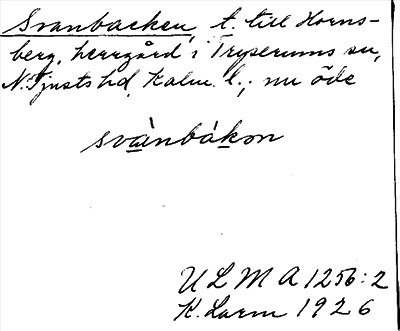 Svanbacken, t. till Horns-
berg, herrgård i Tryserums sn,
N. Tjusts hd, Kalm. l.; nu öde
svànbákon
U L M A 1256:2
K. Larm 1926